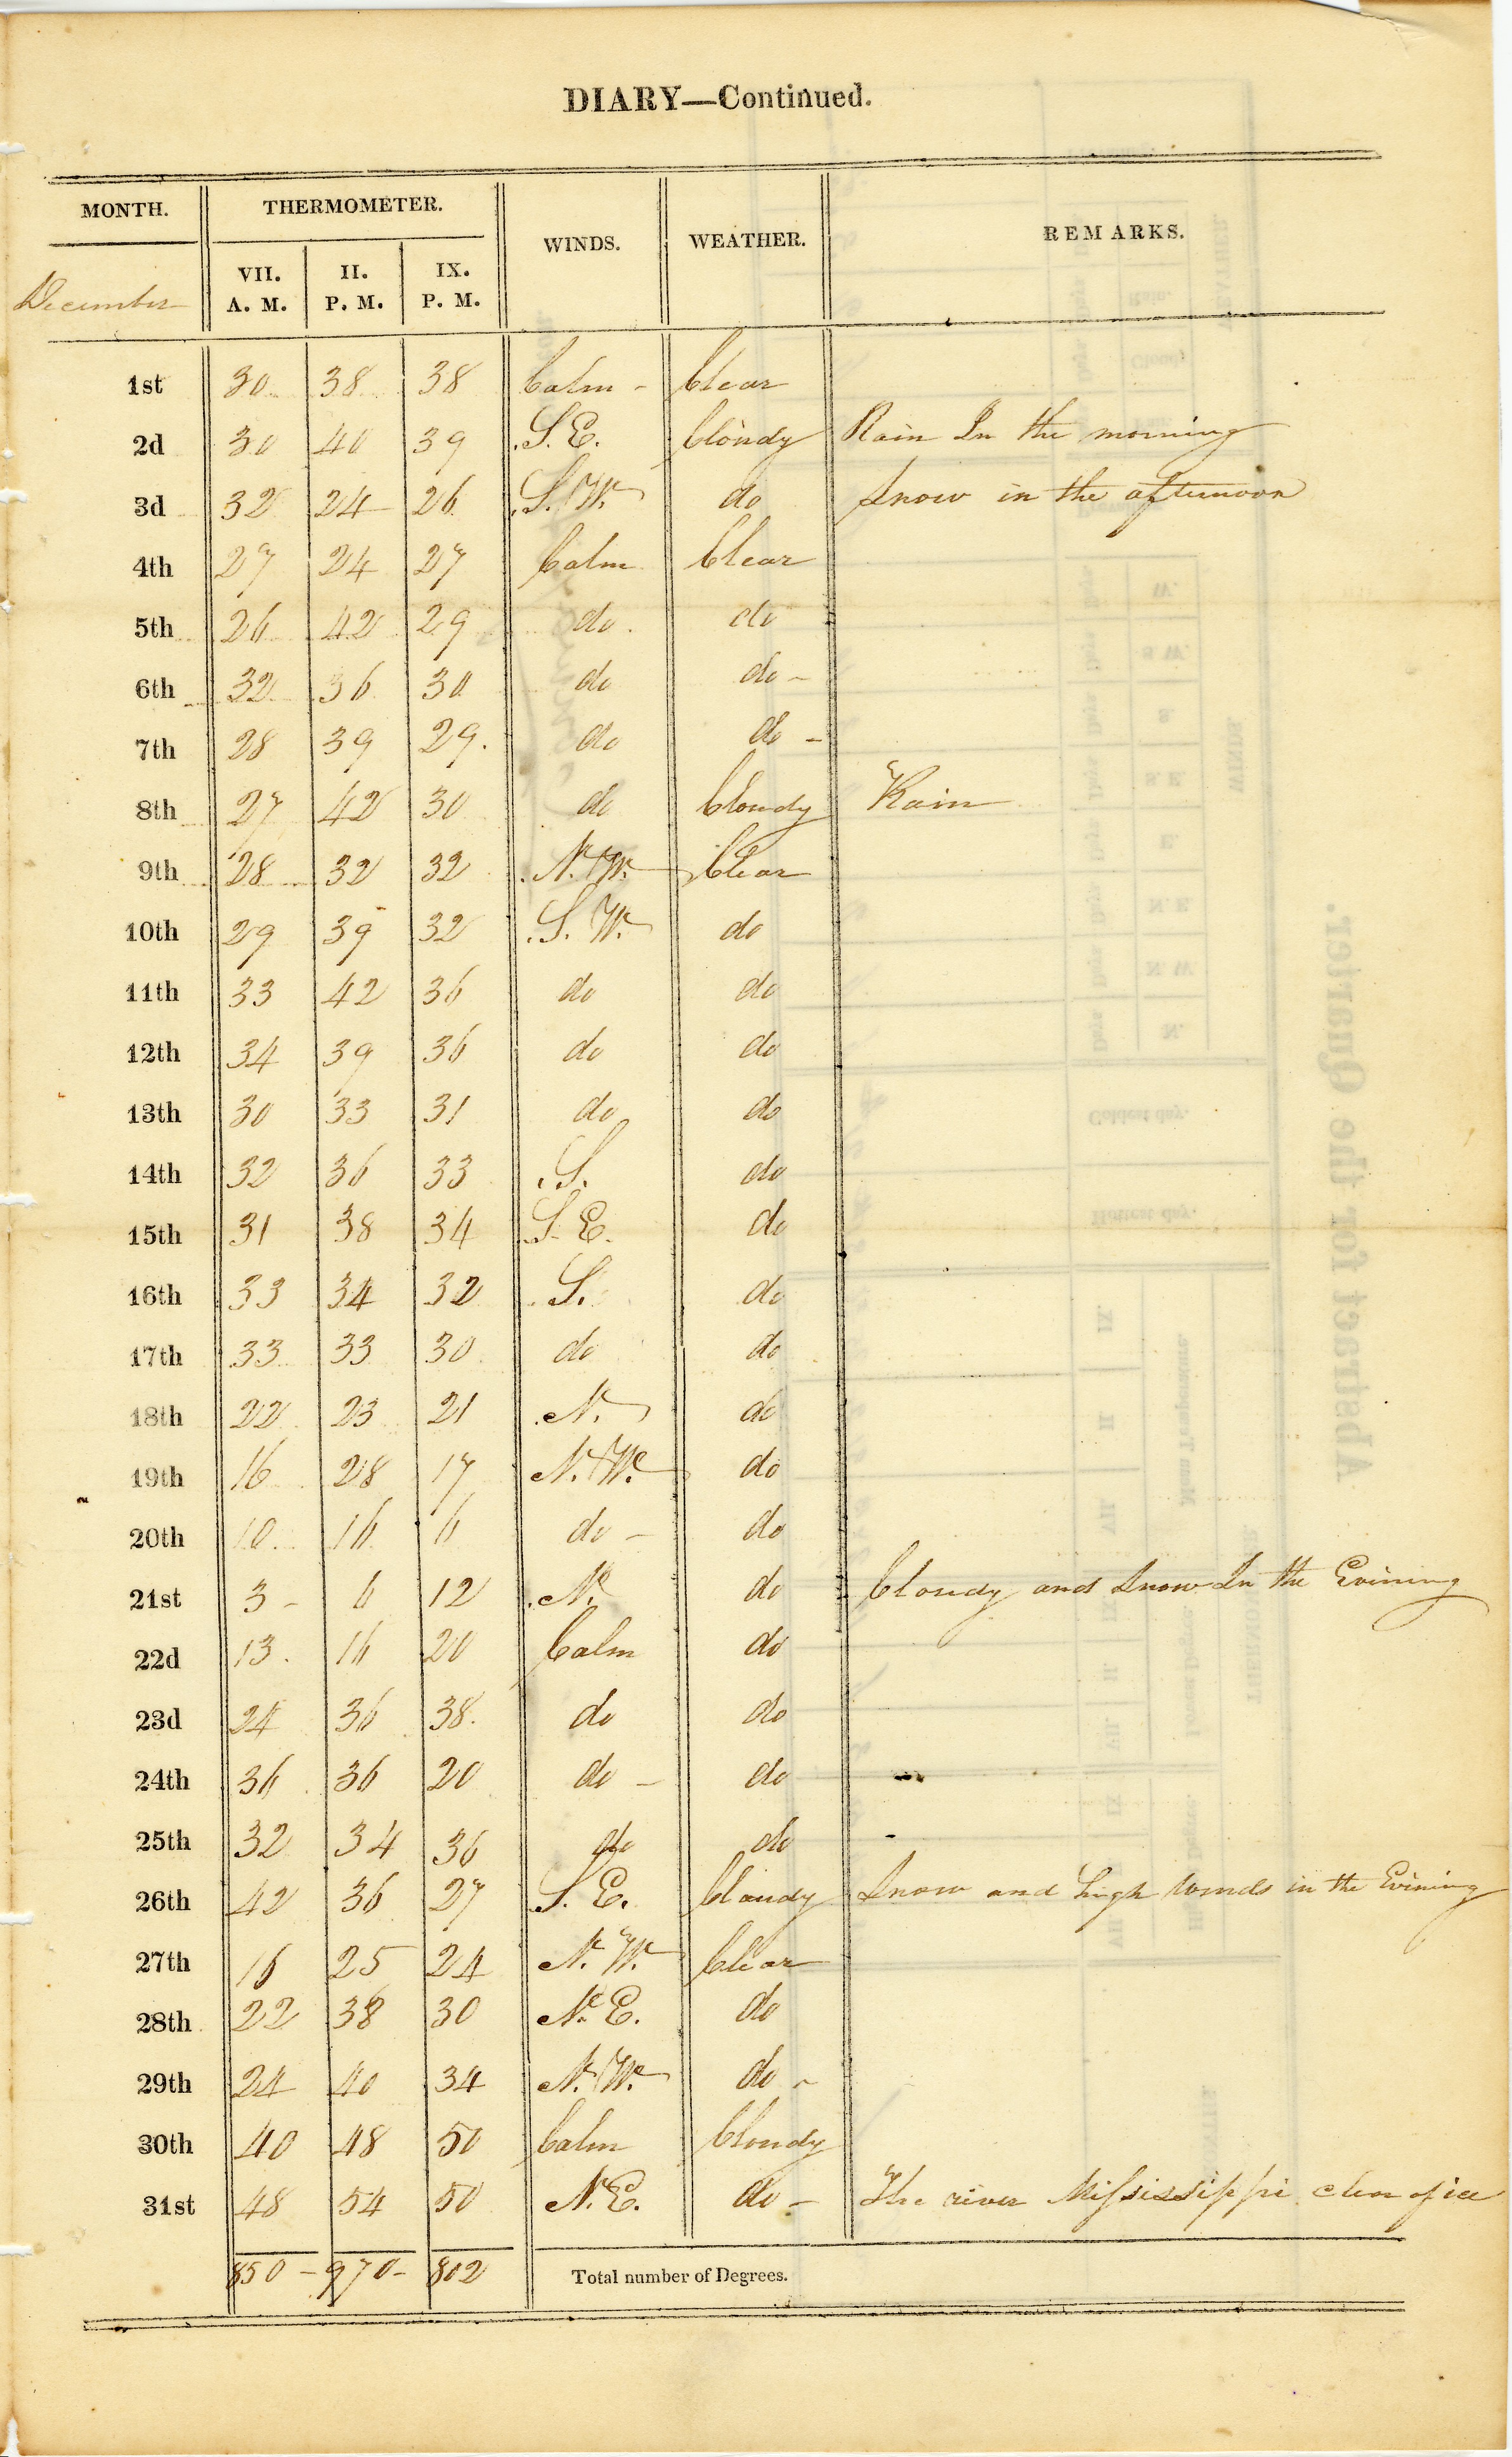 DIARY—Continued.
MONTH. THERMOMETER. WINDS. WEATHER. REMARKS.
December VII. A. M. II. P. M. IX. P. M.
1st 30 38 38 Calm - Clear
2d 30 40 39 S. E. Cloudy Rain In the morning
3d 32 24 26 S. W. do Snow in the afternoon
4th 27 24 27 Calm Clear
5th 26 42 29 do. do
6th 32 36 30 do do -
7th 28 39 29. do do -
8th 27 42 30 do Cloudy Rain
9th 28 32 32 N. W. Clear
10th 29 39 32 S. W. do
11th 33 42 36 do do
12th 34 39 36 do do
13th 30 33 31 do do
14th 32 36 33 S. do
15th 31 38 34 S. E. do
16th 33 34 32 S. do
17th 33 33 30 do do
18th 22 23 21 N. do
19th 16 28 17 N. W. do
20th 10 16 6 do - do
21st 3 - 6 12 N. do Cloudy and Snow In the Evining
22d 13. 16 20 Calm do
23d 24 36 38. do do
24th 36 36 20 do - do
25th 32 34 36 do do
26th 42 36 27 S. E. Cloudy Snow and high winds in the Evining
27th 16 25 24 N. W. Clear
28th 22 38 30 N. E. do
29th 24 40 34 N. W. do -
30th 40 48 50 Calm Cloudy
31st 48 54 50 N. E. do - The river Mississippi clear of ice
850 - 970 - 802 Total number of Degrees.